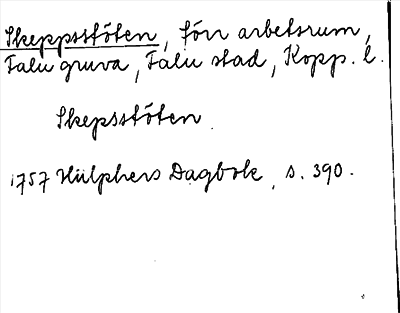 Skeppsstöten, förr arbetsrum,
Falu gruva, Falu stad, Kopp. l.
Skepsstöten
1757 Hülphers Dagbok, s. 390.